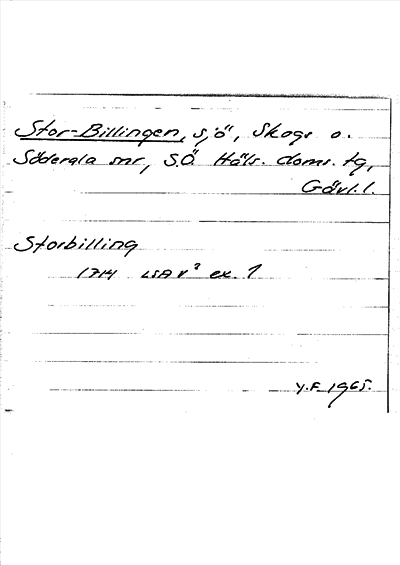 Stor-Billingen, sjö, Skogs o.
Söderala snr, S.Ö Häls. doms. tg,
Gävl. l.
Storbilling
1714 LSA V² ex. 1
Y.F. 1965.